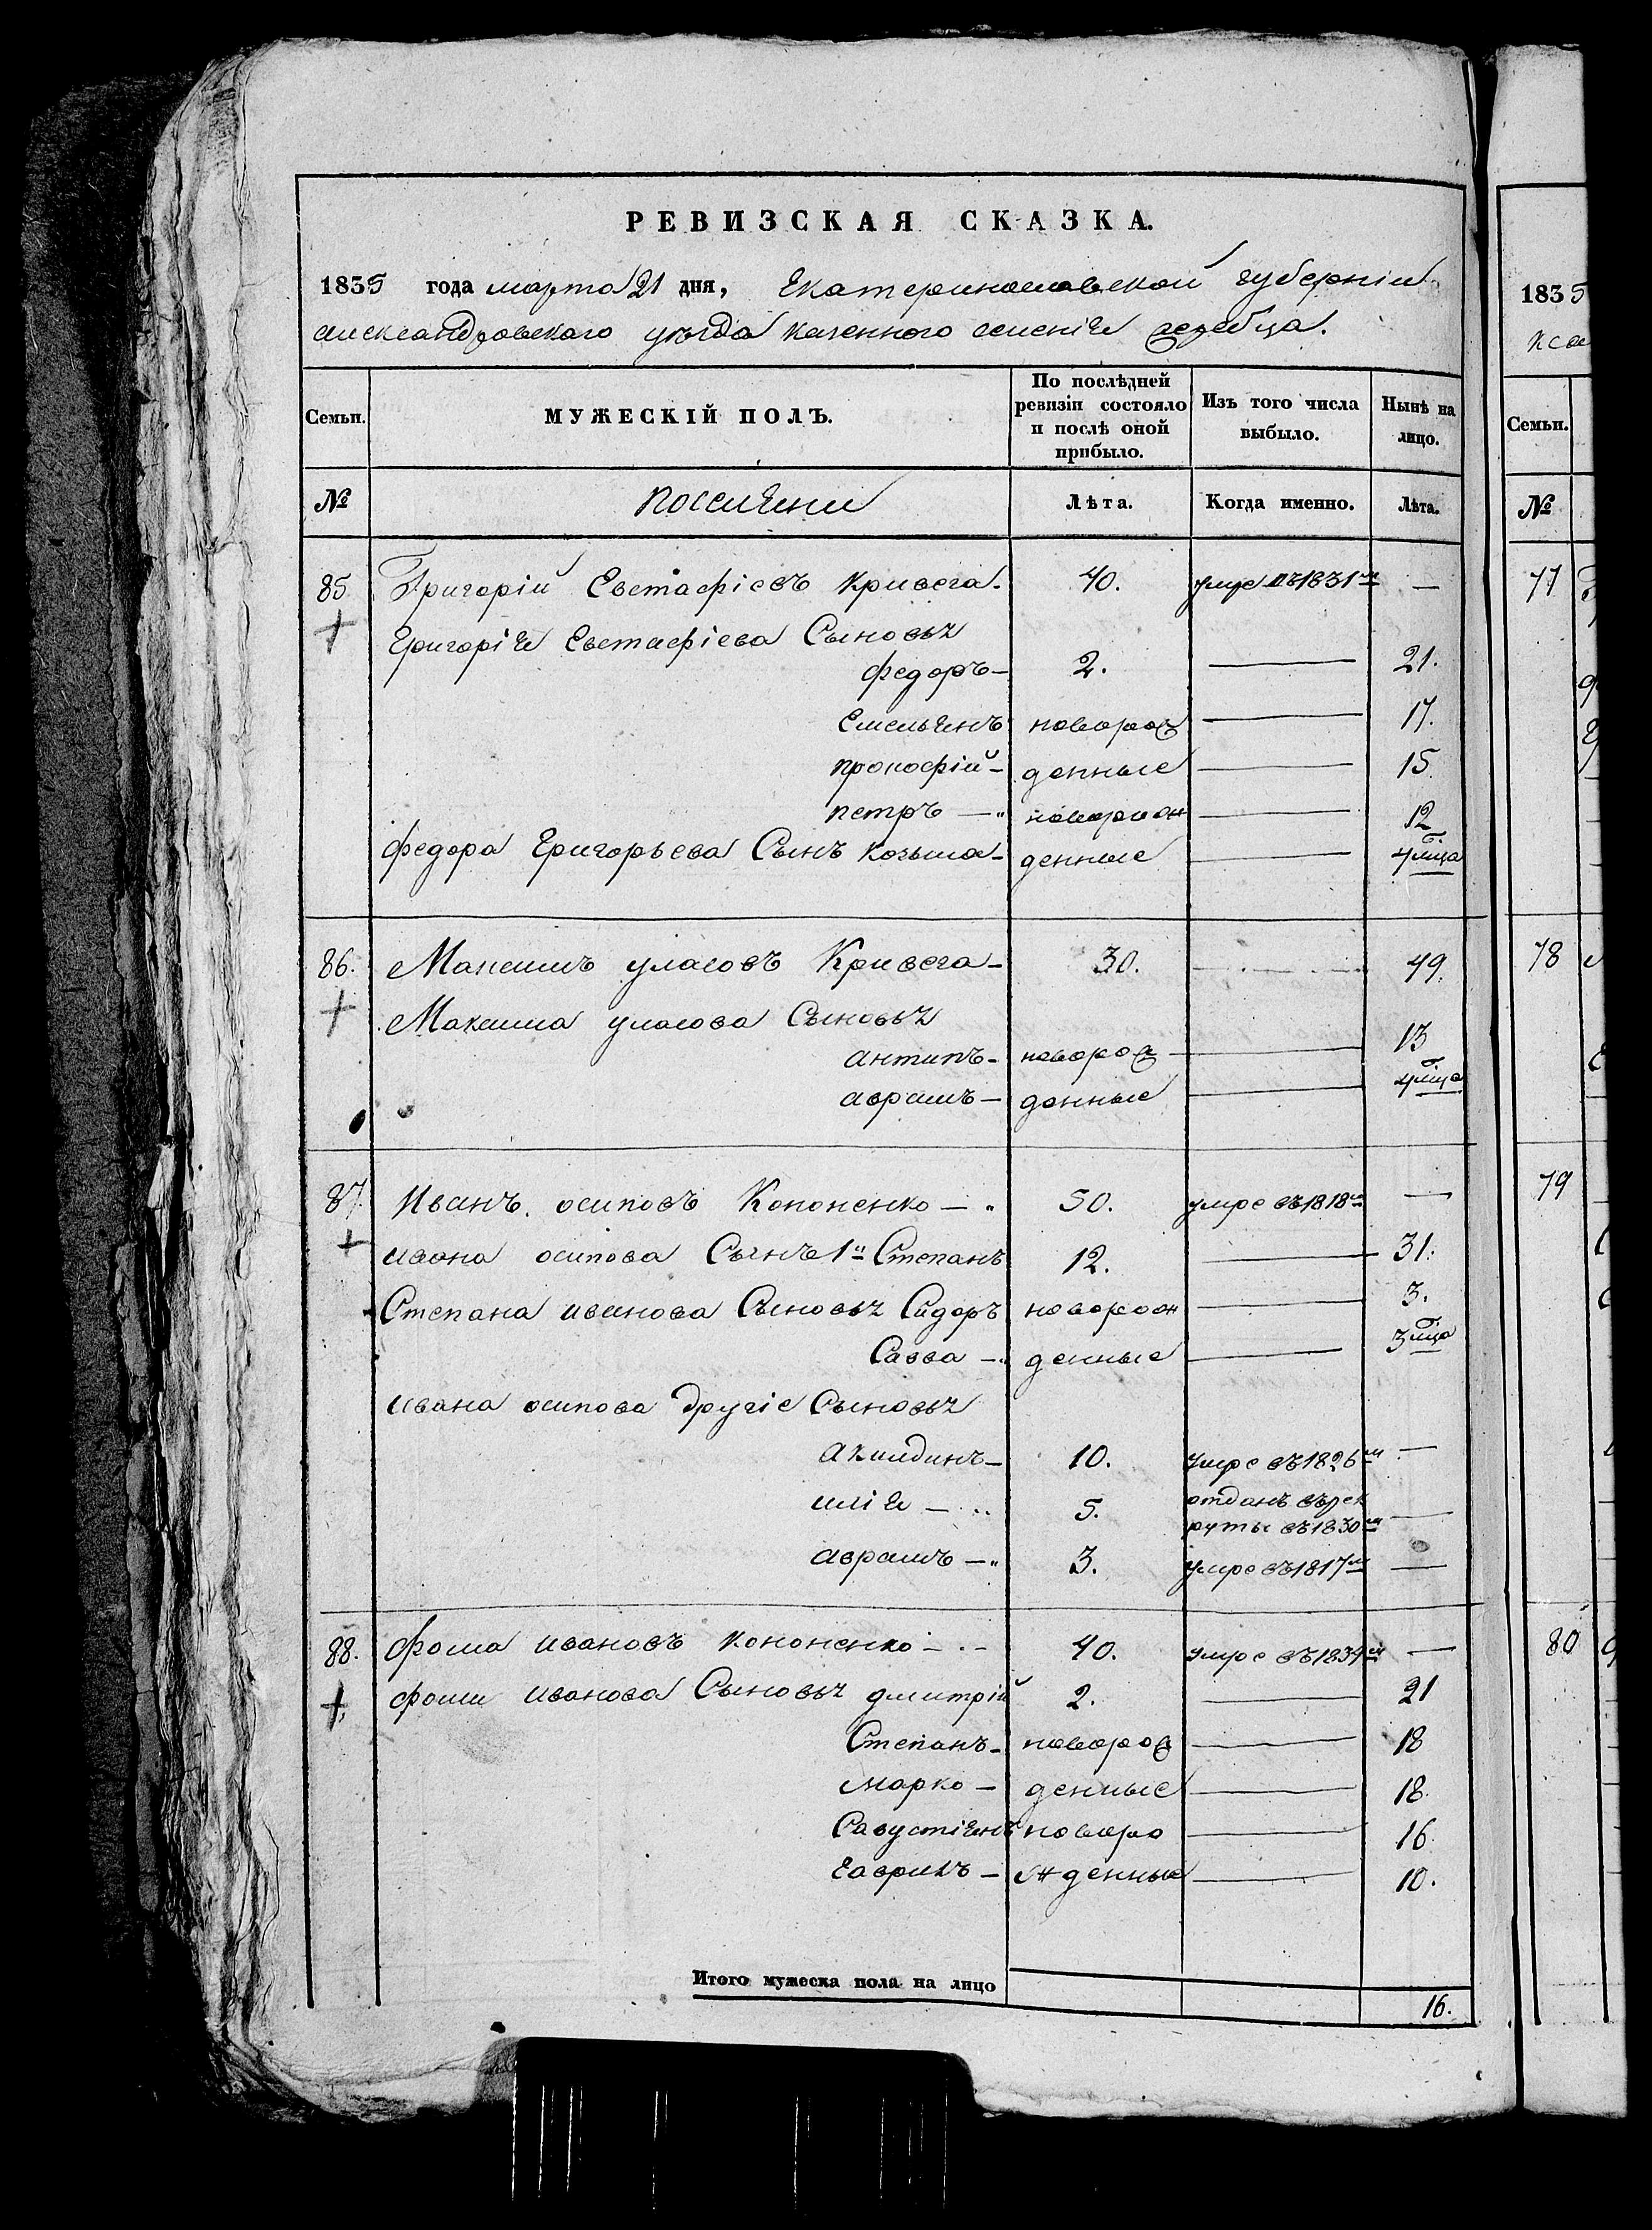 РЕВИЗСКАЯ СКАЗКА.
1835 года марта 21 дня, Екатеринославской губерніи
александровского уѣзда казенного селенія
Семьи. МУЖЕСКІЙ ПОЛЪ. По послѣдней ревизіи состояло и послѣ оной прибыло. Изъ того числа выбыло. Нынѣ на лицо.
№ поселяни Лѣта. Когда именно. Лѣта.
85. Григорій Евстафіевъ Кривега 40. умре въ 1831м —
Григорія Евстафіева Сыновья
федоръ 2. — 21.
Емельянъ новорож — 17.
прокофій денные — 15.
петръ новорож — 12
федора Григорьева Сынъ козьма денные — 4 мца
86. Максимъ уласовъ Кривега 30. — 49.
Максима уласова Сыновья
антипъ новорож — 13
аврамъ денные — 4 мца
87. Иванъ осиповъ Кононенко 50. умре въ 1818м —
ивана осипова Сынъ 1й Степанъ 12. — 31.
Степана иванова Сыновья Сидоръ новорож — 3.
Савва денные — 3 мца
ивана осипова другіе Сыновья
акилдинъ 10. умре въ 1826м —
илія 5. отданъ въ рек
руты въ 1830м —
аврамъ 3. умре въ 1817м —
88. фома ивановъ кононенко 40. умре въ 1834м —
фоми иванова Сыновья дмитрій 2. — 21
Степанъ новорож — 18
марко денные — 18.
Савустіянъ новоро — 16.
Гаврилъ жденные — 10.
Итого мужеска пола на лицо 16.
1835
Семьи.
№
77
78
79
80